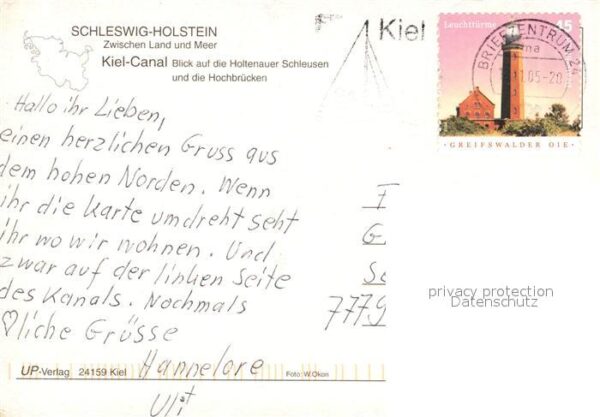 SCHLESWIG-HOLSTEIN
Zwischen Land und Meer
Kiel-Canal Blick auf die Holtenauer Schleusen
und die Hochbrücken
Kiel
Leuchttürme 45
BRIEFZENTRUM 24
05-20
GREIFSWALDER OIE
Hallo ihr Lieben,
einen herzlichen Gruss aus
dem hohen Norden. Wenn
ihr die Karte umdreht seht
ihr wo wir wohnen. Und
zwar auf der linken Seite
des Kanals. Nochmals
♡liche Grüsse
Hannelore
UP-Verlag 24159 Kiel
Foto: W.Okon
privacy protection
Datenschutz